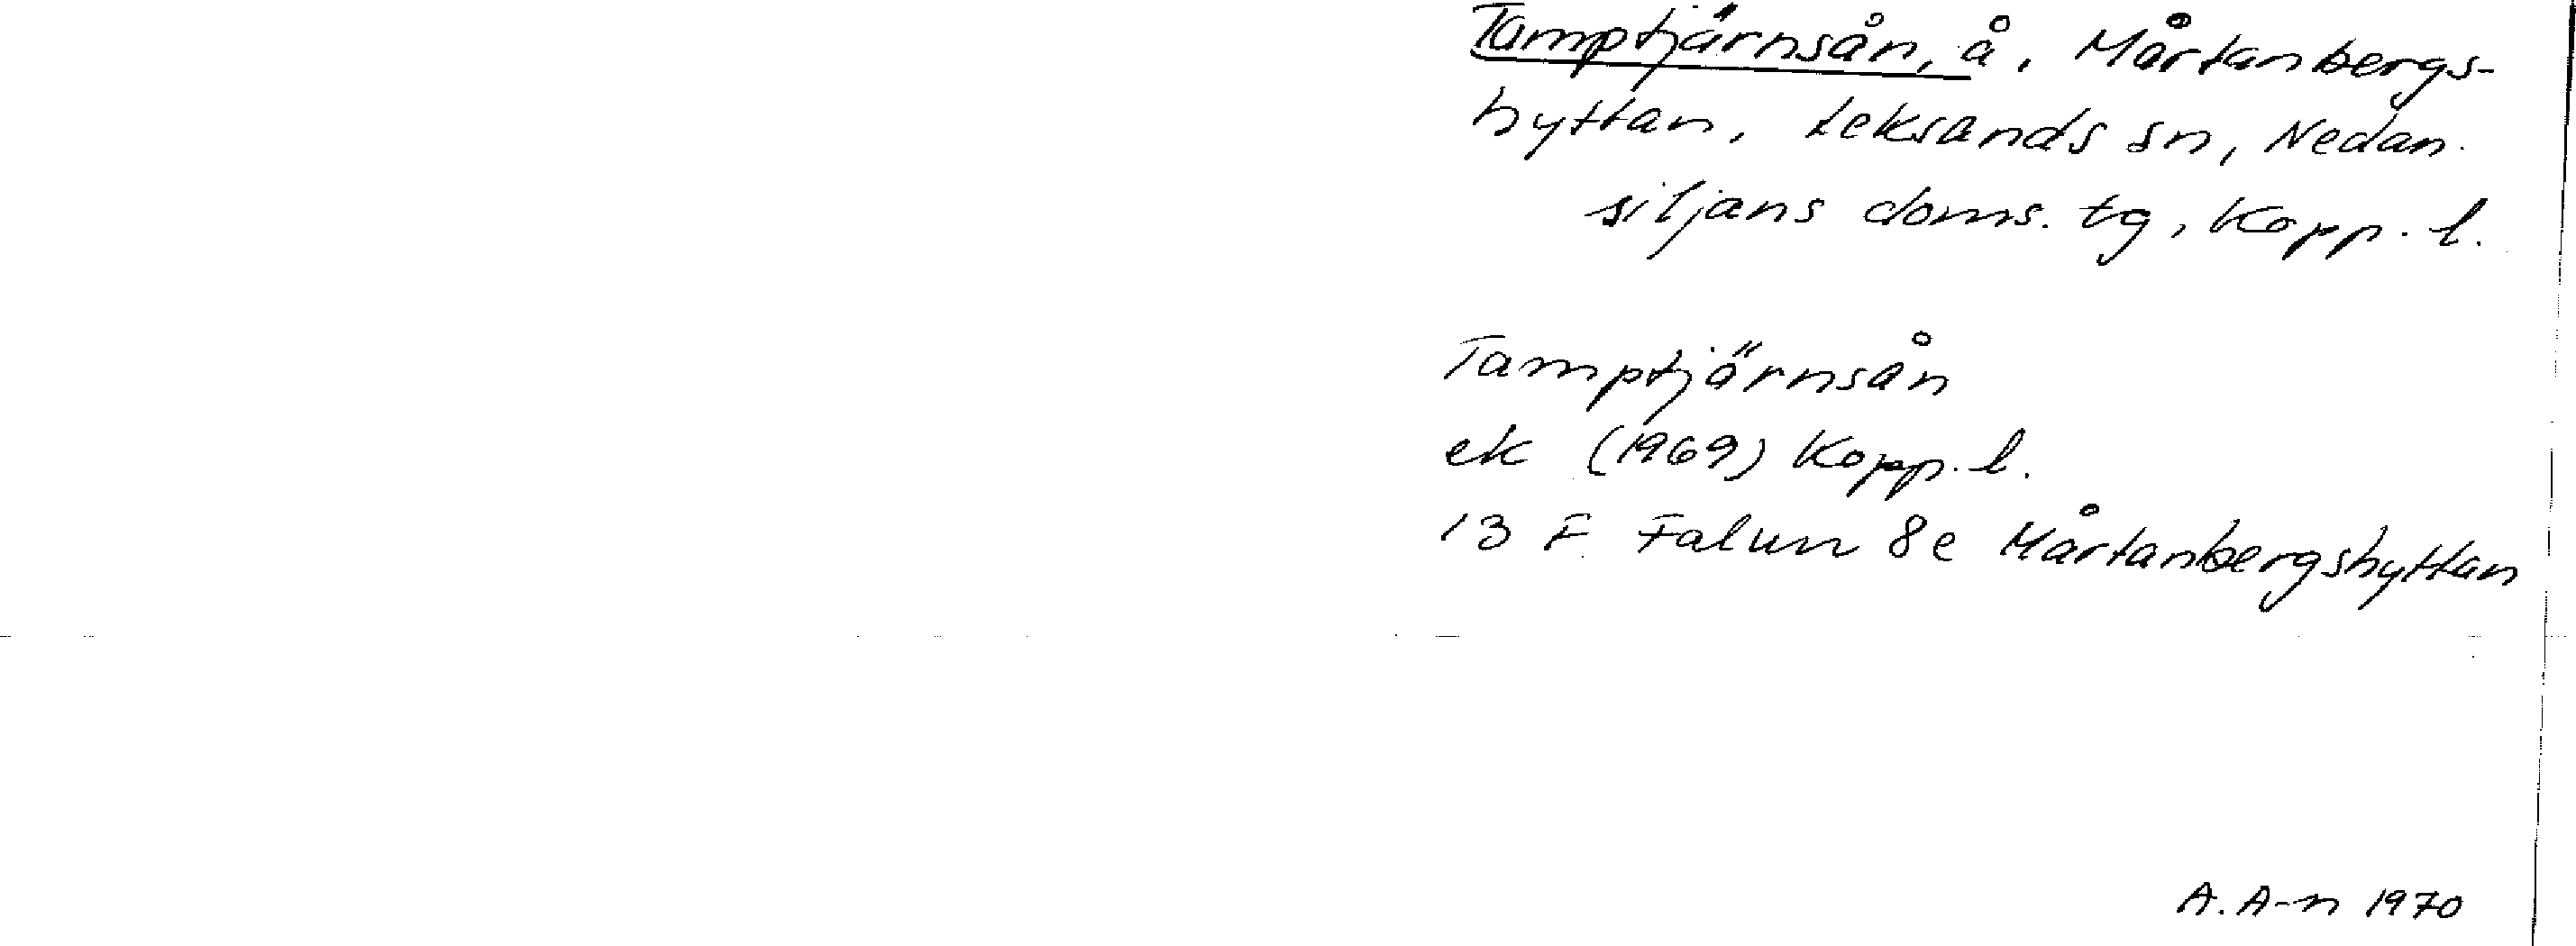 Tamptjärnsån, å, Mårtanbergs-
hyttan, Leksands sn, Nedan-
siljans doms. tg, Kopp. l.
Tamptjärnsån
ek (1969) Kopp. l.
13 F Falun 8e Mårtanbergshyttan
A. A-n 1970